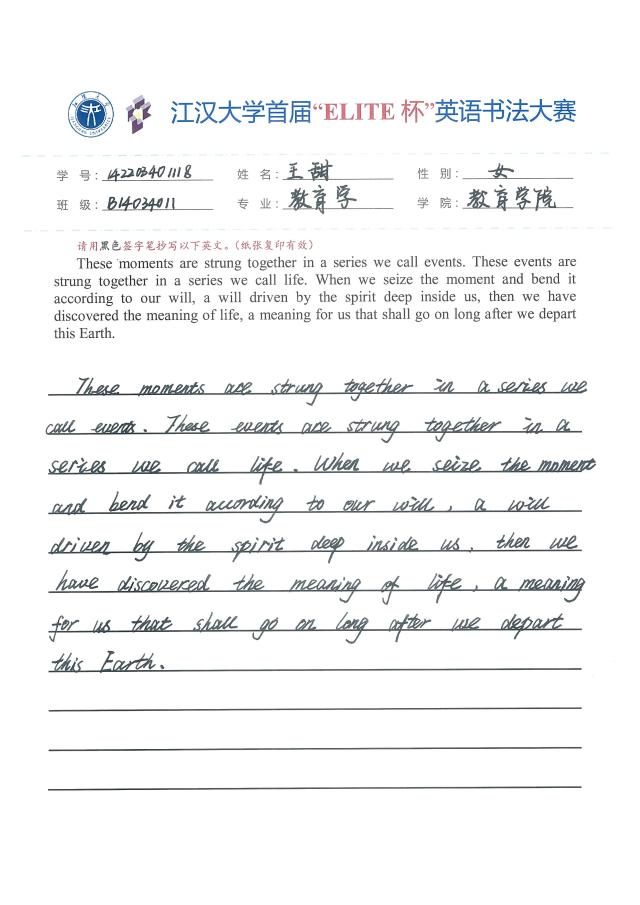 江汉大学首届“ELITE 杯”英语书法大赛
学 号：142203401118 姓 名：王甜 性 别：女
班 级：B14034011 专 业：教育学 学 院：教育学院
请用黑色签字笔抄写以下英文。（纸张复印有效）
These moments are strung together in a series we call events. These events are
strung together in a series we call life. When we seize the moment and bend it
according to our will, a will driven by the spirit deep inside us, then we have
discovered the meaning of life, a meaning for us that shall go on long after we depart
this Earth.
These moments are strung together in a series we
call events. These events are strung together in a
series we call life. When we seize the moment
and bend it according to our will, a will
driven by the spirit deep inside us, then we
have discovered the meaning of life, a meaning
for us that shall go on long after we depart
this Earth.